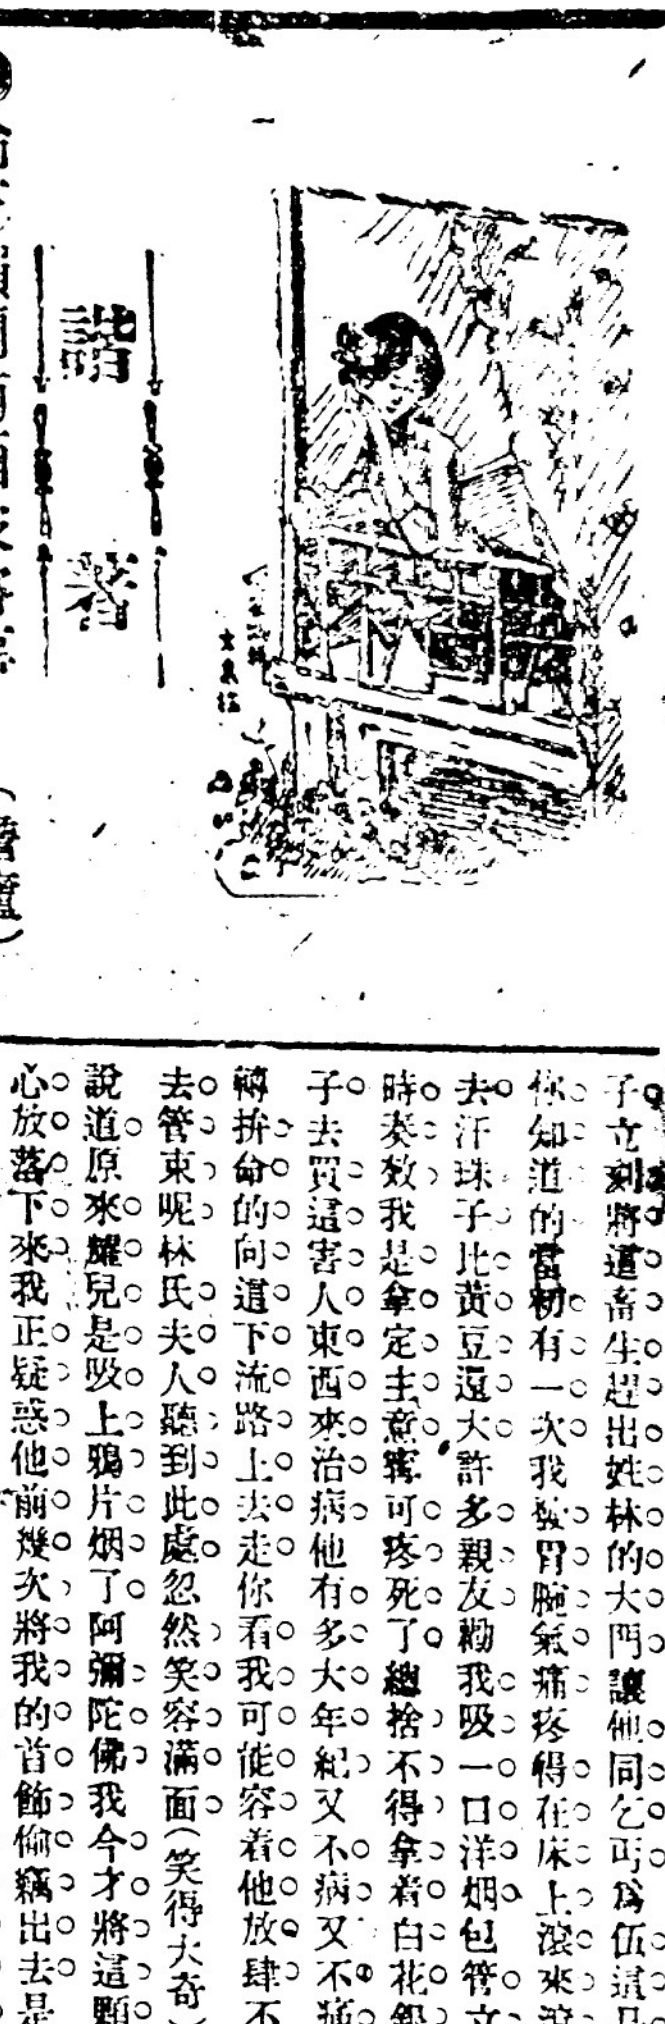 諧著
子立刻將這畜生趕出姓林的大門讓他同乞丐為伍這
你知道的當初有一次我發胃腕氣痛疼得在床上滾來滾
去汗珠子比黃豆還大許多親友勸我吸一口洋烟包管立
時奏效我是拿定主意寧可疼死了總捨不得拿着白花銀
子去買這害人東西來治病他有多大年紀又不病又不痛
轉拚命的向這下流路上去走你看我可能容着他放肆不
去管束呢林氏夫人聽到此處忽然笑容滿面(笑得大奇)
說道原來耀兒是吸上鴉片烟了阿彌陀佛我今才將這顆
心放落下來我正疑惑他前幾次將我的首飾偷竊出去是